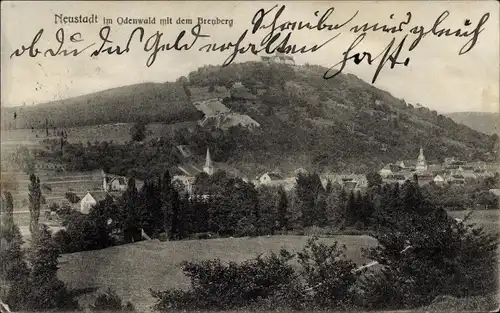 Neustadt im Odenwald mit dem Breuberg
Schreibe mir gleich
ob du das Geld erhalten hast.